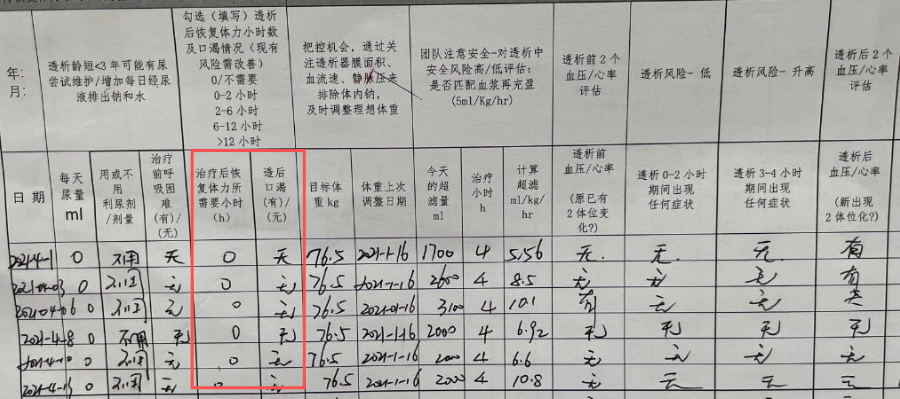 年:
月:
透析龄短<3年可能有尿
尝试维护/增加每日经尿
液排出钠和水
勾选（填写）透析
后恢复体力小时数
及口渴情况（现有
风险需改善）
0/不需要
0-2小时
2-6小时
6-12小时
>12小时
把控机会，通过关
注透析器膜面积、
血流速、静脉压来
排除体内钠，
及时调整理想体重
团队注意安全-对透析中
安全风险高/低评估：
是否匹配血浆再充盈
(5ml/Kg/hr)
透析前2个
血压/心率
评估
透析风险-低
透析风险-升高
透析后2个
血压/心率
评估
日期
每天
尿量
ml
用或不
用
利尿剂
/剂量
治疗
前呼
吸困
难
(有)/
(无)
治疗后恢
复体力所
需要小时
(h)
透后
口渴
(有)/
(无)
目标体
重kg
体重上次
调整日期
今天
的超
滤量
ml
治疗
小时
h
计算
超滤
ml/kg/
hr
透析前
血压/心率
(原已有
2体位变
化?)
透析0-2小时
期间出现
任何症状
透析3-4小时
期间出现
任何症状
透析后
血压/心率
(新出现
2体位化?)
2021-4-1 0 不用 无 0 无 76.5 2021-1-16 1700 4 5.56 无. 无. 无. 有
2021-04-03 0 不用 无 0 无 76.5 2021-1-16 2600 4 8.5 无 无 无 有
2021-04-06 0 不用 无 0 无 76.5 2021-01-16 3100 4 10.1 有 无 无
2021-4-8 0 不用 无 0 无 76.5 2021-1-16 2000 4 6.92 无 无 无 无
2021-4-10 0 不用 无 0 无 76.5 2021-1-16 2000 4 6.6 无 无 无 无
0 不用 无 0 无 76.5 2021-1-16 2000 4 10.8 无 无 无 无